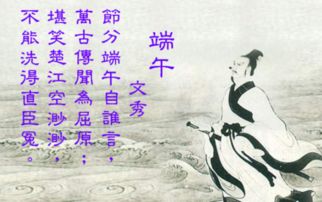 端午
文秀
節分端午自誰言，
萬古傳聞為屈原；
堪笑楚江空渺渺，
不能洗得直臣冤。